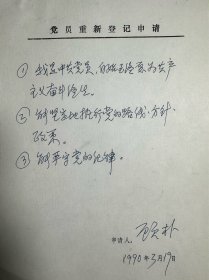 党员重新登记申请
① 我是中共党员，自始至终愿为共产
主义奋斗终生。
② 能坚定地执行党的路线、方针、
政策。
③ 能严守党的纪律。
申请人： 顾朴
1990年3月17日